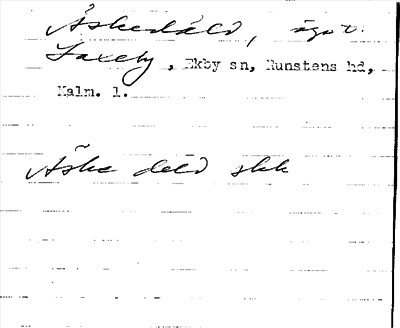 Åskedäld, ägot.
Laxeby, Ekby sn, Runstens hd,
Kalm. l.
Åske däld skk